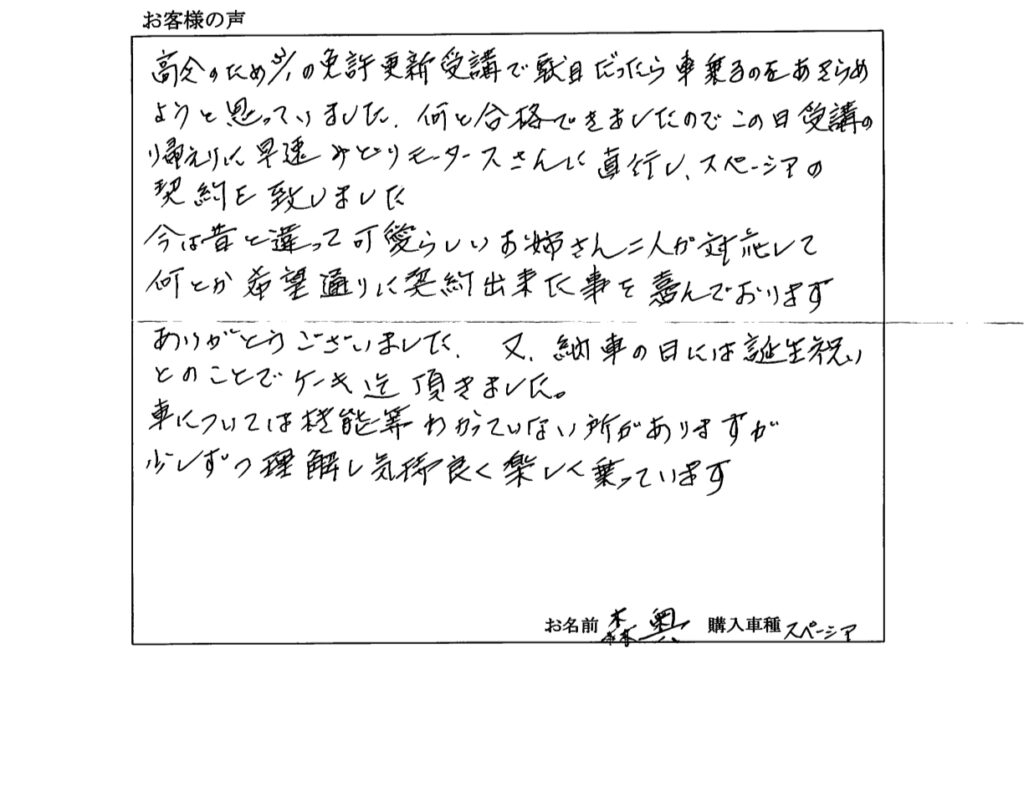 お客様の声
高令のため の免許更新受講で駄目だったら車乗るのをあきらめ
ようと思っていました、何と合格できましたのでこの日受講の
帰えりに早速みどりモータースさんに直行し、スペーシアの
契約を致しました
今は昔と違って可愛らしいお姉さん二人が対応して
何とか希望通りに契約出来た事を喜んでおります
ありがとうございました、又、納車の日には誕生祝い
とのことでケーキ迄頂きました。
車については機能等わかっていない所がありますが
少しずつ理解し気持良く楽しく乗っています
お名前 森 購入車種 スペーシア